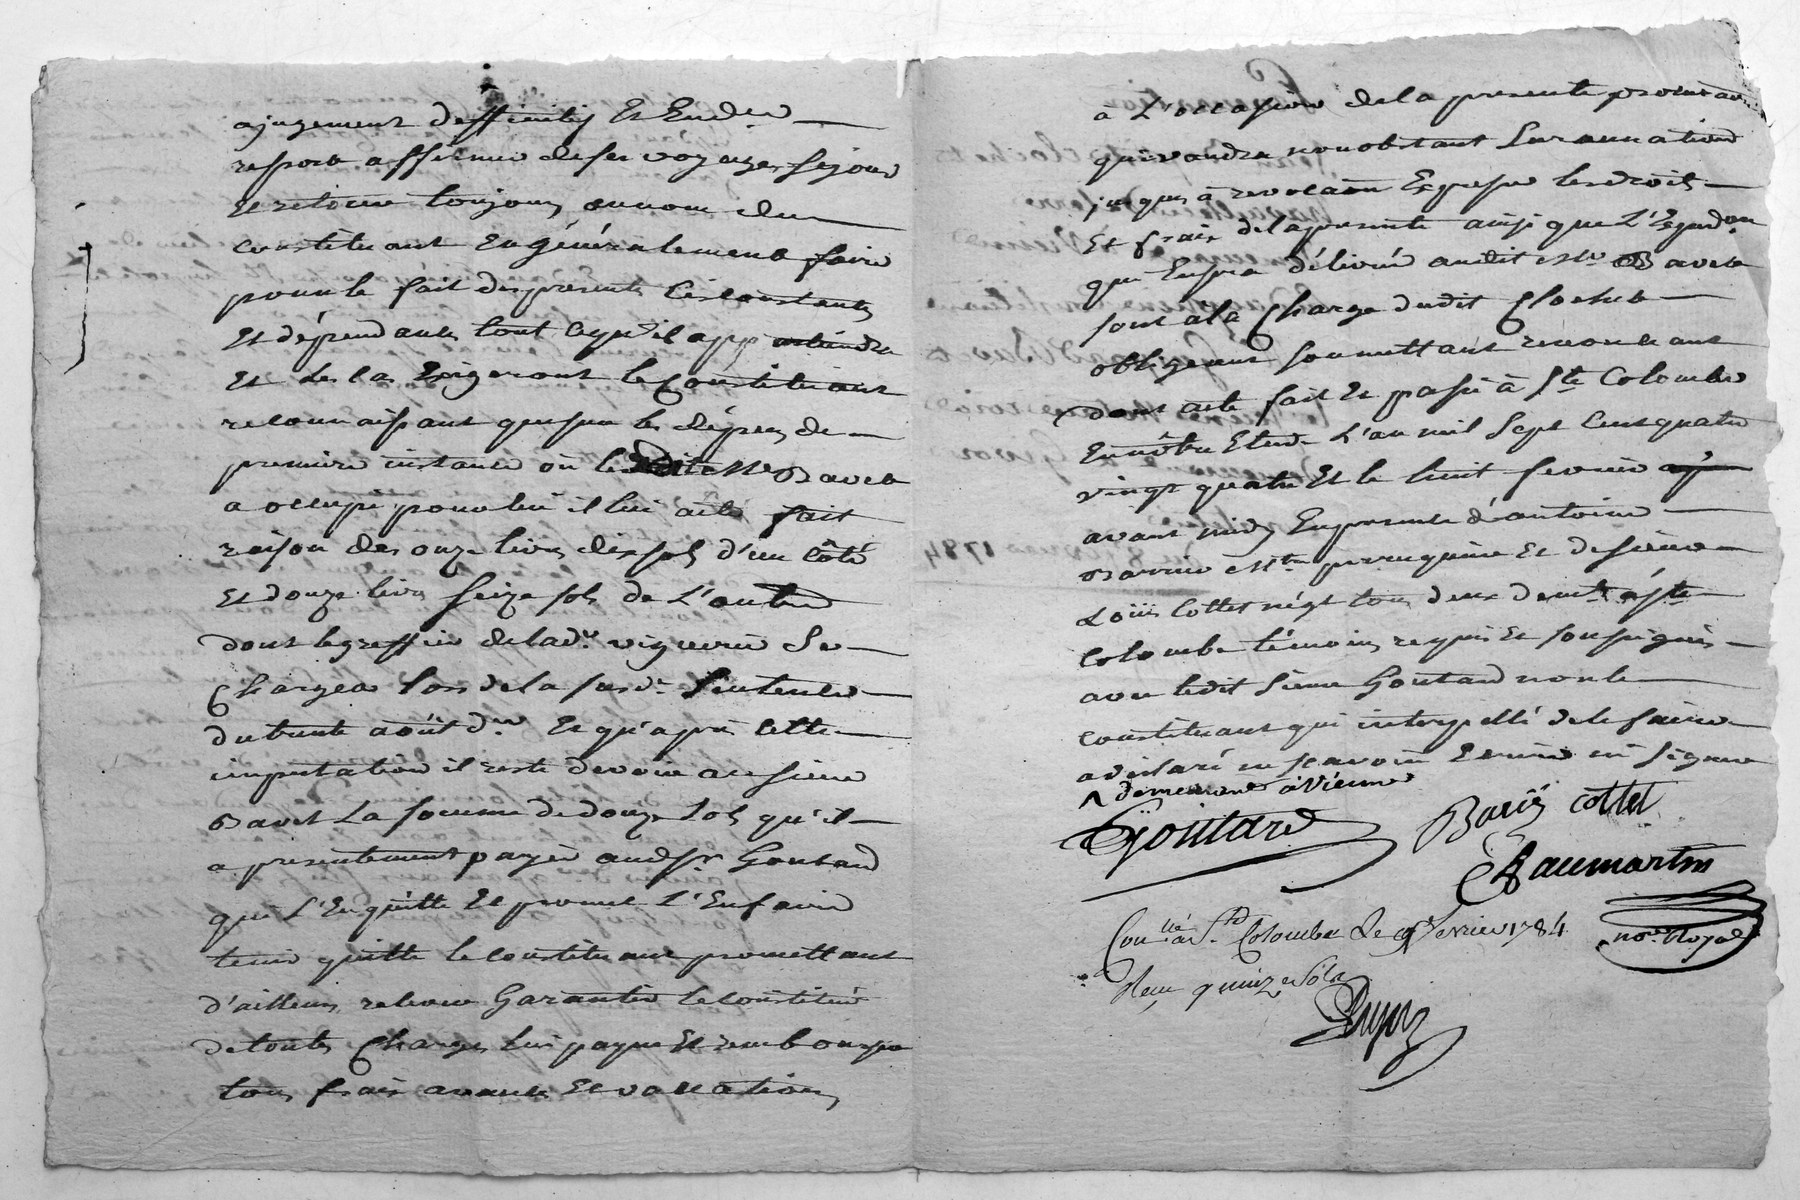 a jugement deffinitif Et En der
ressort affirmer de ses voyages sejour
et retour toujours au nom du
constituant En généralement faire
pour le fait des presentes Circonstances
Et dépendances tout ce qu'il app artiendra
Et Le Cas Exigeront le Constituant
reconnaissant que sur les dépens de
premiere instance où le dit Me Bavet
a occupé pour lui il lui a été fait
raison des onze livres dix sols d'un côté
Et douze livres Seize sols de L'autre
dont le greffier de lad.e viguerie Se
Chargea lors de la susd.e Sentence
du trente août d.er Et qu'apres cette
imputation il reste devoir au sieur
Bavet La somme de douze sols qu'il
a presentement payée aud. sr. Goutard
qui L'En quitte Et promet L'En faire
tenir quitte le constituant promettant
d'ailleurs relever Garantir le Constitué
de toutes Charges Lui payer Et rembourser
tous frais avances Et vaccations
à L'occasion de la presente procura
qui vaudra nonobstant Surannation
jusques à revocaon Expresse les droits
Et frais de la presente ainsi que L'Expedon
qui En sera délivrée audit Me Bavet
sont a la Charge dudit Clochet
obligeant soumettant renoncant
dont acte fait Et passé à Ste Colombe
En nôtre Etude L'an mil Sept Cent quatre
vingt quatre Et le huit fevrier
avant midy En presence d'antoine
Barrie Me perruquier Et de sieur
Loüis Cottet négt tous deux demts à Ste
Colombe témoins requis Et soussignés
avec ledit Sieur Goutard non le
constituant qui interpellé de le faire
a déclaré ne scavoir Ecrire ni Signer
^ demeurant à Vienne
Goutard Cottet
Chaumartin
no.re Royal
Con.llé a S.te Colombe Le 9 fevrier 1784
Reçu quinze Sols